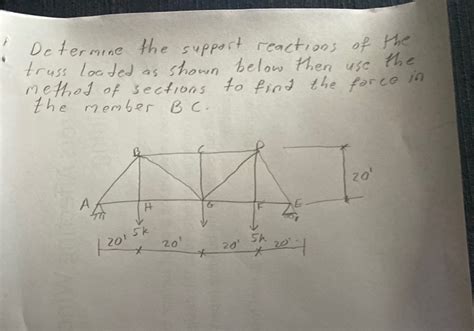 Determine the support reactions of the
truss loaded as shown below then use the
method of sections to find the force in
the member BC.
B C D
20'
A H G F E
5k 5k
20' 20' 20' 20'